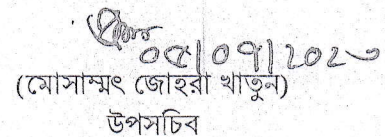 ০৫/০৭/২০২০
(মোসাম্মৎ জোহরা খাতুন)
উপসচিব